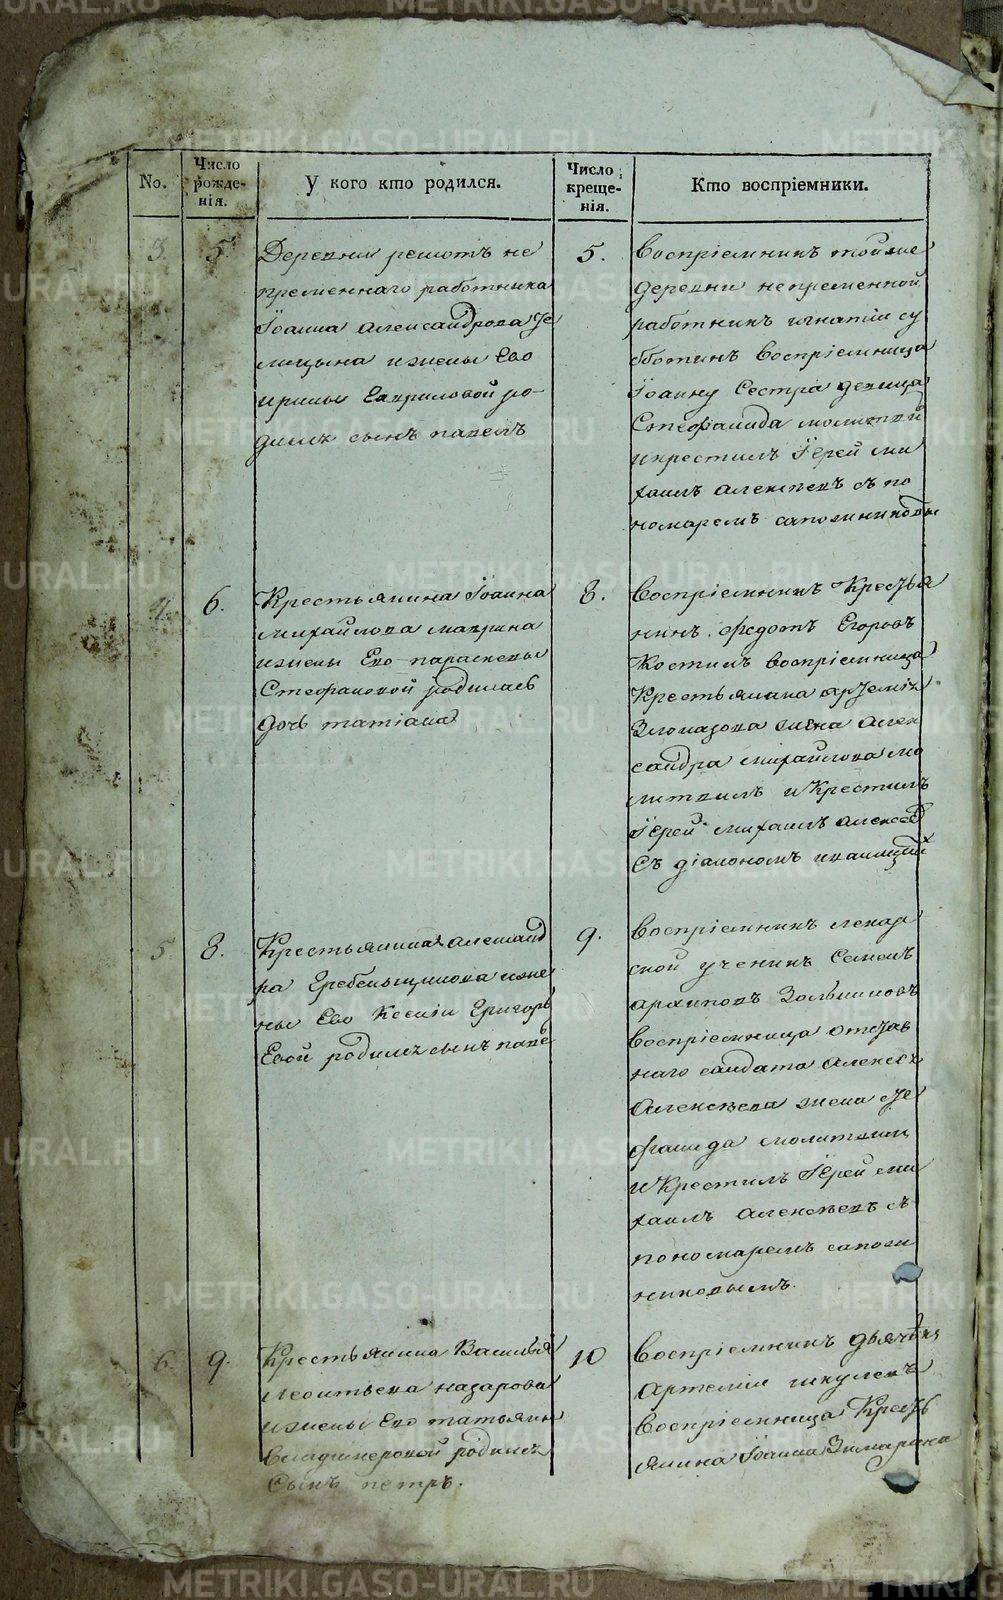 No.
Число рожде-нія.
У кого кто родился.
Число креще-нія.
Кто воспріемники.
3.
5
Деревни решотъ не
премѣннаго работника
Іоанна Александрова
и жены Ево
ирины Гавриловой ро-
дилъ сынъ павелъ
5.
Воспріемникъ тойже
деревни непременной
работникъ игнатій су
ботинъ Воспріемница
Іоанну Сестра девица
Стефанида молитвилъ
и крестилъ Іерей ми
хаилъ алексѣевъ съ по
номаремъ сапожниковы
4.
6.
Крестьянина Іоанна
михайлова маврина
и жены Ево параскевы
Стефановой родилась
дочь татіана
8.
Воспріемникъ Крестья
нинъ федотъ Егоровъ
Костинъ воспріемница
Крестьянина артемія
Зломазова жена алек
сандра михайлова мо
литвилъ и Крестилъ
Іерей михаилъ алексее
съ діакономъ
5.
8.
Крестьянина александ
ра Гребеньщикова и же
ны Ево Ксеніи Григорь
Евой родилъ сынъ паве
9.
Воспріемникъ лекар
ской ученикъ Семенъ
архиповъ
воспріемница отстав
наго салдата алексѣя
алексѣева жена сте
фанида молитвилъ
и Крестилъ Іерей ми
хаилъ алексѣевъ съ
пономаремъ сапож
никовымъ.
6.
9.
Крестьянина Василья
леонтьева назарова
и жены Ево татьяны
владимеровой родилъ
сынъ петръ.
10
Воспріемникъ дьячекъ
артемій
воспріемница Кресть
янина Іоанна
METRIKI.GASO-URAL.RU